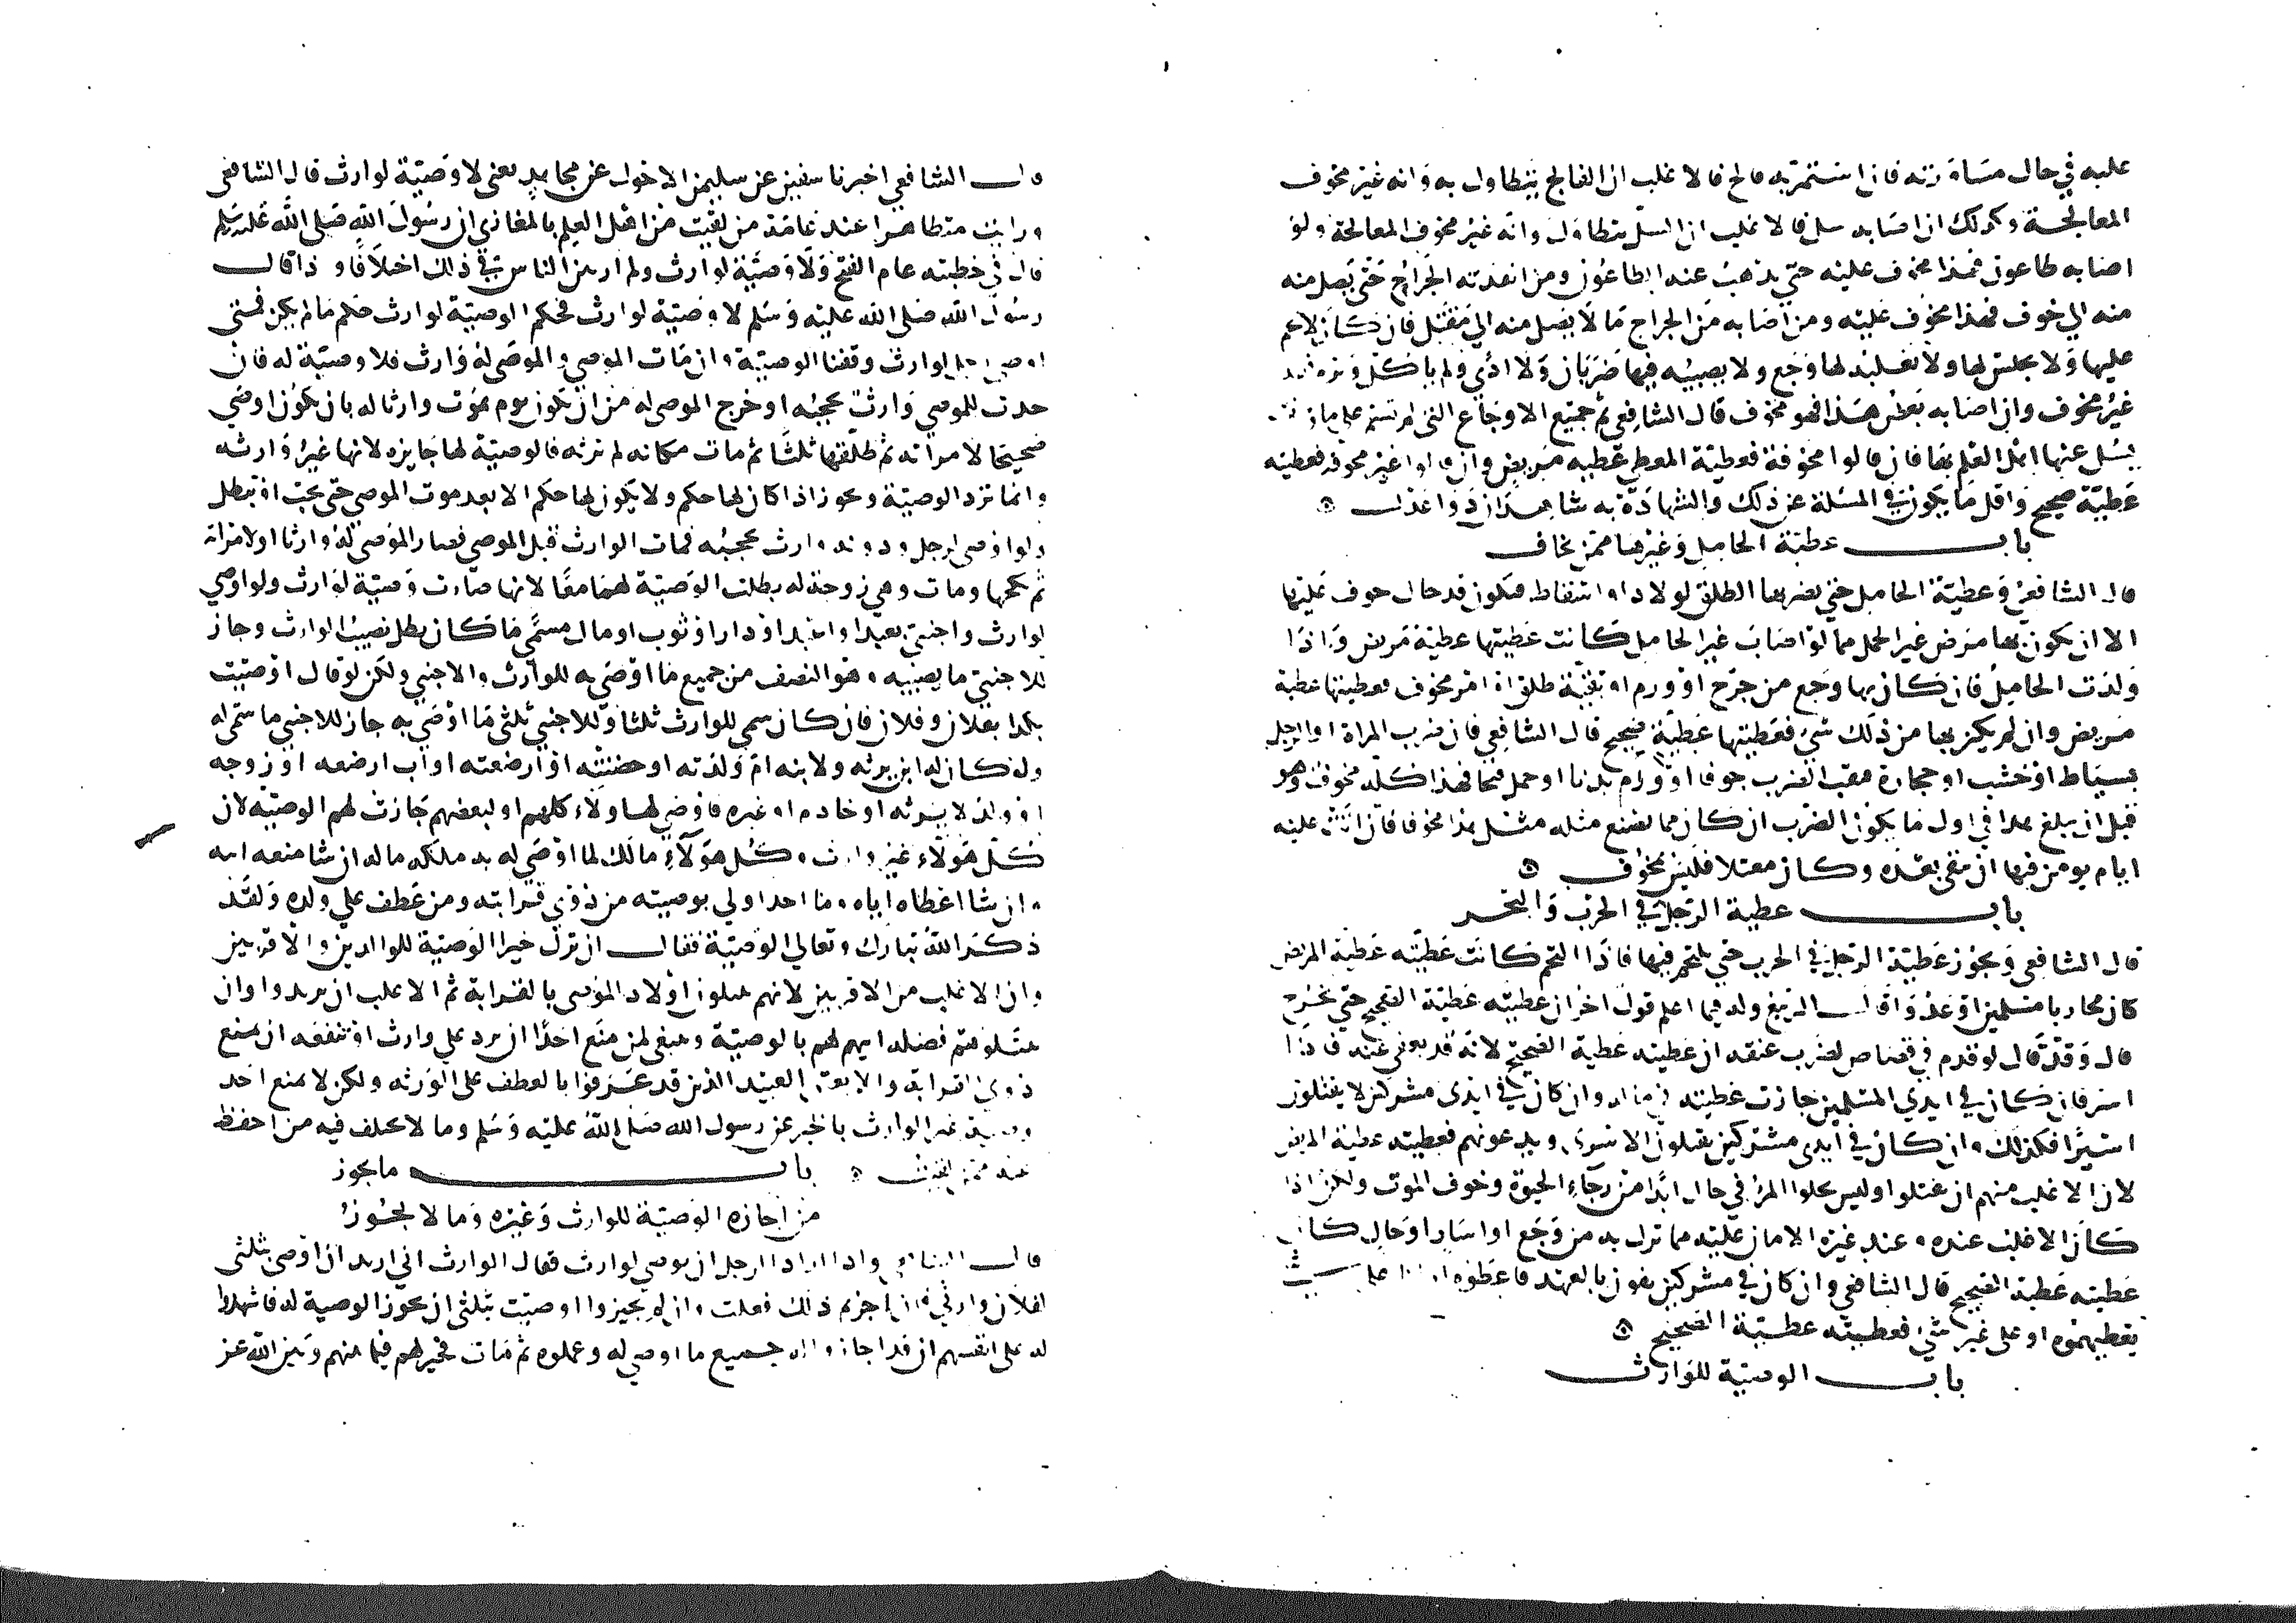 عليه في حال مساورته فاذا استمر به فالج فالاغلب ان الفالج يتطاول به وانه غير مخوف
المعالجة وكذلك ان اصابه سل فالاغلب ان السل يتطاول وانه غير مخوف المعالجة ولو
اصابه طاعون فهذا مخوف عليه حتى يذهب عنه الطاعون ومن انفذته الجراح حتى يصل منه
منه الي جوف فهذا مخوف عليه ومن اصابه من الجراح ما لا يصل منه الي مقتل فان كان لا يحم
عليها ولا يجلس لها ولا يغلبه لها وجع ولا يصيبه فيها ضربان ولا اذي ولم ياكل ويرم فهذا
غير مخوف وان اصابه بعض هذا فهو مخوف قال الشافعي ثم جميع الاوجاع التي لم تسم علي ما
يسل عنها اهل العلم بها فان قالوا مخوفة فعطية المعطي عطيه مريض وان قالوا غير مخوفه فعطيته
عطية صحيح واقل ما يكون في المسلة عن ذلك والشهادة به شاهدان ذوا عدل
باب عطية الحامل وغيرها ممن يخاف
قال الشافعي وعطية الحامل حتى يضربها الطلق لولاد او اسقاط فتكون قد حال خوف عليها
الا ان يكون بها مرض غير الحمل مما لو اصاب غير الحامل كانت عطيتها عطية مريض واذا
ولدت الحامل فان كان بها وجع من جرح او ورم او بقية طلق او امر مخوف فعطيتها عطية
مريض وان لم يكن بها من ذلك شي فعطيتها عطية صحيح قال الشافعي فان ضرب المراة او الرجل
بسياط او خشب او حجارة فثقب الضرب جوفا او ورم بدنا او حمل قيحا فهذا كله مخوف وهو
قبل ان يبلغ هذا في اول ما يكون الضرب ان كان مما يصنع مثله مثل هذا مخوفا فان اتت عليه
ايام يومن فيها ان يبقى بعده وكان معتلا فليس بمخوف
باب عطية الرجل في الحرب والبحر
قال الشافعي وتجوز عطية الرجل في الحرب حتى يلتحم فيها فاذا التحم كانت عطيته عطية المريض
كان محاربا مسلمين او عدوا قال الربيع وله فيما اعلم قول اخر ان عطيته عطية الصحيح حتى يجرح
قال وقد قال لو قدم في قصاص لضرب عنقه ان عطيته عطية الصحيح لانه قد يعفى عنه فاذا
اسر فان كان في ايدي المسلمين جازت عطيته في ماله وان كان في ايدي مشركين لا يقتلون
اسيرا فكذلك وان كان في ايدي مشركين يقتلون الاسري ويدعونهم فعطيته عطية المريض
لان الاغلب منهم ان يقتلوا وليس يخلوا المر في حال ابدا من رجاء الحيوة وخوف الموت ولكن اذا
كان الاغلب عنده وعند غيره الامان عليه مما نزل به من وجع او اسار او حال كانت
عطيته عطية الصحيح قال الشافعي وان كان في مشركين يفون بالعهد فاعطوه امانا على شي
يعطيهموه او على غير شي فعطيته عطية الصحيح
باب الوصية للوارث
قال الشافعي اخبرنا سفين عن سليمن الاحول عن مجاهد يعني لا وصية لوارث قال الشافعي
ورايت متظاهرا عند عامة من لقيت من اهل العلم بالمغازي ان رسول الله صلى الله عليه وسلم
قال في خطبته عام الفتح ولا وصية لوارث ولم ار بين الناس في ذلك اختلافا واذا قال
رسول الله صلى الله عليه وسلم لا وصية لوارث فحكم الوصية لوارث حكم ما لم يكن فمتى
اوصى رجل لوارث وقفنا الوصية وان مات الموصي والموصى له وارث فلا وصية له فان
حدث للموصي وارث يحجبه او خرج الموصى له من ان يكون يوم يموت وارثا له بان يكون اوصي
صحيحا لامراته ثم طلقها ثلثا ثم مات مكانه لم ترثه فالوصية لها جايزه لانها غير وارثه
وانما ترد الوصية وتجوز اذا كان لها حكم ولا يكون لها حكم الا بعد موت الموصي حتى يجب او تبطل
ولو اوصى لرجل ودونه وارث يحجبه فمات الوارث قبل الموصي فصار الموصى له وارثا او لامراة
ثم نكحها ومات وهي زوجته بطلت الوصية لهما معا لانها صارت وصية لوارث ولو اوصي
لوارث واجنبي بعبد او اعبد او دار او ثوب او مال مسمى ما كان بطل نصيب الوارث وجاز
للاجنبي ما يصيبه وهو النصف من جميع ما اوصي به للوارث والاجنبي ولكن لو قال اوصيت
بكذا لفلان وفلان فان كان سمى للوارث ثلثا وللاجنبي ثلثي ما اوصي به جاز للاجنبي ما سمى له
ولو كان له ابن يرثه ولابنه ام ولدته او حضنته او ارضعته او اب ارضعه او زوجه
او ولد لا يرثه او خادم او غيره فاوصي لهاولاء كلهم او لبعضهم جازت لهم الوصيه لان
كل هولاء غير وارث وكل هولاء مالك لما اوصي له به ملكه ماله ان شا منعه ابنه
وان شا اعطاه اياه وما احد اولي بوصيته من ذوي قرابته ومن عطف علي ولده ولقد
ذكر الله تبارك وتعالي الوصية فقال ان ترك خيرا الوصية للوالدين والاقربين
وان الاغلب من الاقربين لانهم يبتلون اولاد الموصي بالقرابة ثم الاغلب ان يريدوا وان
يبتلوهم فضلهم لهم بالوصية وينبغي لمن منع احدا ان يرد علي وارث او تنفعه ان يمنع
ذوي القرابة والا يعتق العبيد الذين قد عرفوا بالعطف على الورثه ولكن لا يمنع احد
وصية غير الوارث بالخبر عن رسول الله صلى الله عليه وسلم وما لا يختلف فيه من احفظ
عنه ممن لقيت باب ما يجوز
من اجازه الوصية للوارث وغيره وما لا يجوز
قال الشافعي واذا اراد الرجل ان يوصي لوارث فقال للوارث اني اريد ان اوصي بثلثى
لفلان وارثي فان اجزتم ذلك فعلت وان لم تجيزوا اوصيت بثلثي لمن تجوز الوصية له فاشهدوا
له على انفسهم ان قد اجازوا له جميع ما اوصى له وعملوه ثم مات فخير لهم فيما بينهم وبين الله عز